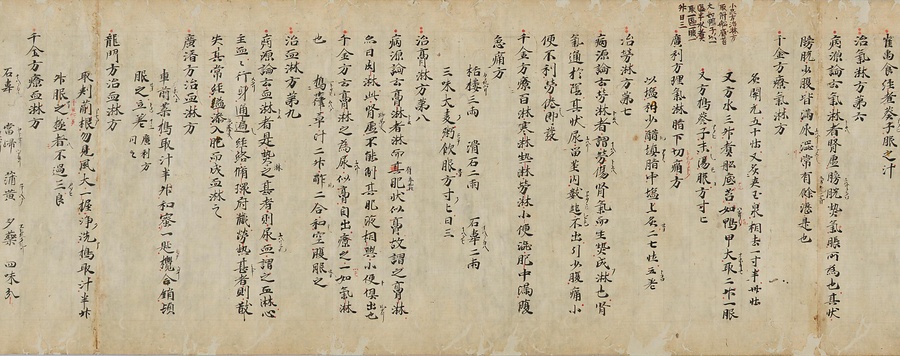 崔禹食経煮葵子服之汁
治氣淋方第六
病源論云氣淋者腎虛膀胱熱氣脹所為也其狀
膀胱小腹皆滿尿澁常有餘瀝是也
千金方療氣淋方
灸開元五十壯又灸夹玉泉相去一寸半卅壯
又方水三升煮舩底苔如鴨甲大取二升一服
又方搗葵子末湯服方寸匕
廣利方理氣淋臍下切痛方
以塩和少醋填臍中塩上灸二七壯立老
治勞淋方第七
病源論云勞淋者謂勞傷腎氣而生熱成淋也腎
氣通於陰其狀尿留茎內數起不出引少腹痛小
便不利勞倦即發
千金方療百淋寒淋熱淋勞淋小便澁肥中滿腹
急痛方
栝樓三兩 滑石二兩 石韋二兩
三味大麦粥飲服方寸匕日三
治膏淋方第八
病源論云膏淋者淋而其肥狀似膏故謂之膏淋
亦曰肉淋此腎虛不能制其肥液相與小便俱出也
千金方云膏淋之為尿似膏自出療之一如氣淋
也
搗葎草汁二升酢二合和空腹服之
治血淋方第九
病源論云血淋者是熱之甚者則尿血謂之血淋心
主血血行身通遍経絡循環府藏勞熱甚者則散
失其常経溢滲入肥而成血淋之
廣濟方治血淋方
車前菜搗取汁半升和蜜一匙攪令銷頓
服之立差
廣利方同之
龍門方治血淋方
取荆葥根勿見風大一握淨洗搗取汁半升
升服之盤者不過三良
千金方療血淋方
石韋 當歸 蒲黄 夕藥 四味分